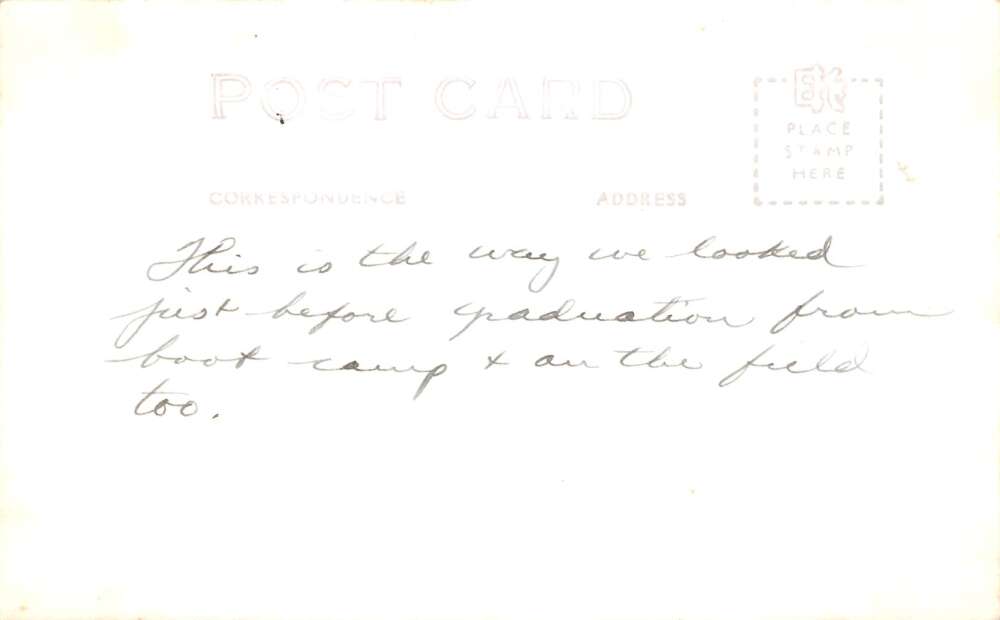 POST CARD
PLACE
STAMP
HERE
CORRESPONDENCE
ADDRESS
This is the way we looked
just before graduation from
boot camp + on the field
too.